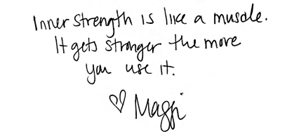 Inner strength is like a muscle.
It gets stronger the more
you use it.
♡ Maggi